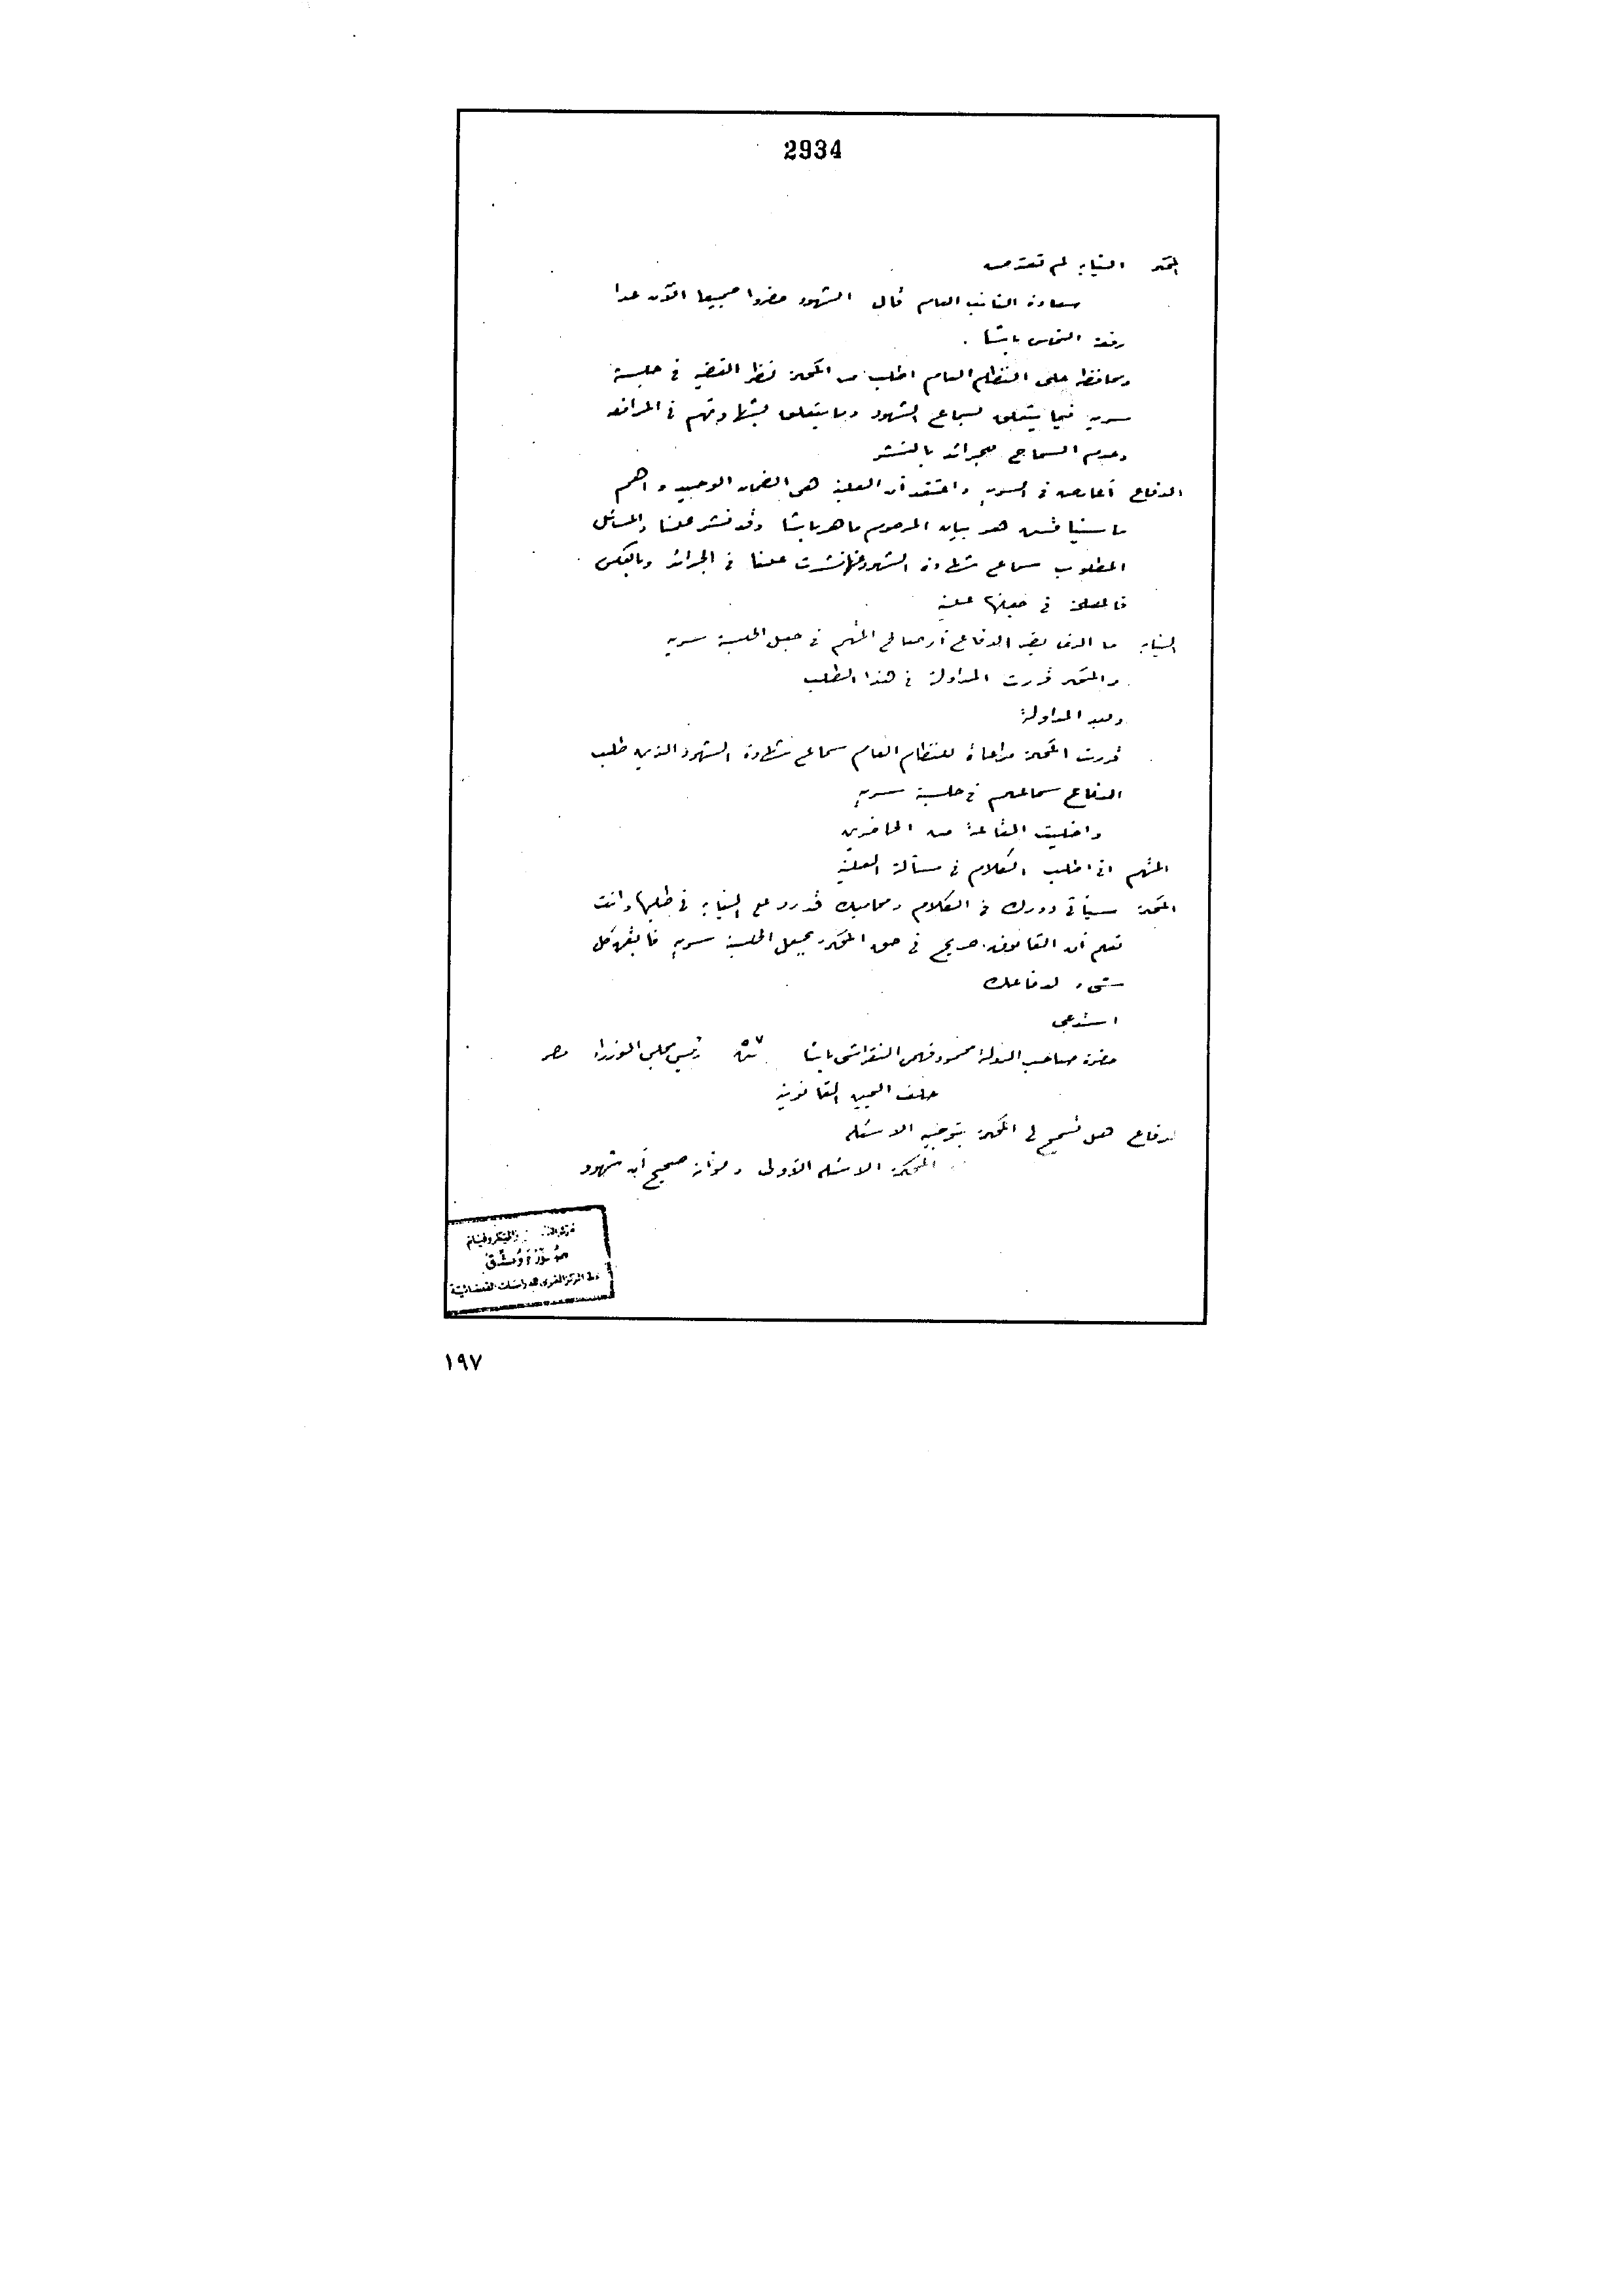 2934
المحكمة النيابة لم تعترض
سعادة النائب العام قال الشهود حضروا جميعا الآن عدا
رفعة النحاس باشا .
ومحافظة على النظام العام اطلب من المحكمة نظر القضية في جلسة
سرية فيما يتعلق بسماع الشهود وما يتعلق بشهادتهم في المرافعة
وعدم السماح للجرائد بالنشر
الدفاع أعارض في السرية واعتقد أن العلنية هي الضمان الوحيد وأهم
ما سيناقش هو بيان المرحوم ماهر باشا وقد نشر علنا والمسائل
المطلوب سماع شهادة الشهود عنها نشرت علنا في الجرائد وبالعكس
فالمصلحة في جعلها علنية
النيابة ما الذي يضير الدفاع أو صالح المتهم في جعل الجلسة سرية
والمحكمة قررت المداولة في هذا الطلب
وبعد المداولة
قررت المحكمة مراعاة للنظام العام سماع شهادة الشهود الذين طلب
الدفاع سماعهم في جلسة سرية
واخليت القاعة من الحاضرين
المتهم اني اطلب الكلام في مسألة العلنية
المحكمة سيأتي دورك في الكلام ومحاميك قد رد على النيابة في طلبها وانت
تعلم أن القانون صريح في حق المحكمة بجعل الجلسة سرية فابق كل
شيء لدفاعك
استدعي
حضرة صاحب الدولة محمود فهمي النقراشي باشا ٥٧ سنة رئيس مجلس الوزراء مصر
حلف اليمين القانونية
الدفاع هل تسمح لي المحكمة بتوجيه الاسئلة
المحكمة الاسئلة الأولى صحيح أن شهود
مركز والميكروفيلم
المركز القومي للدراسات القضائية
١٩٧